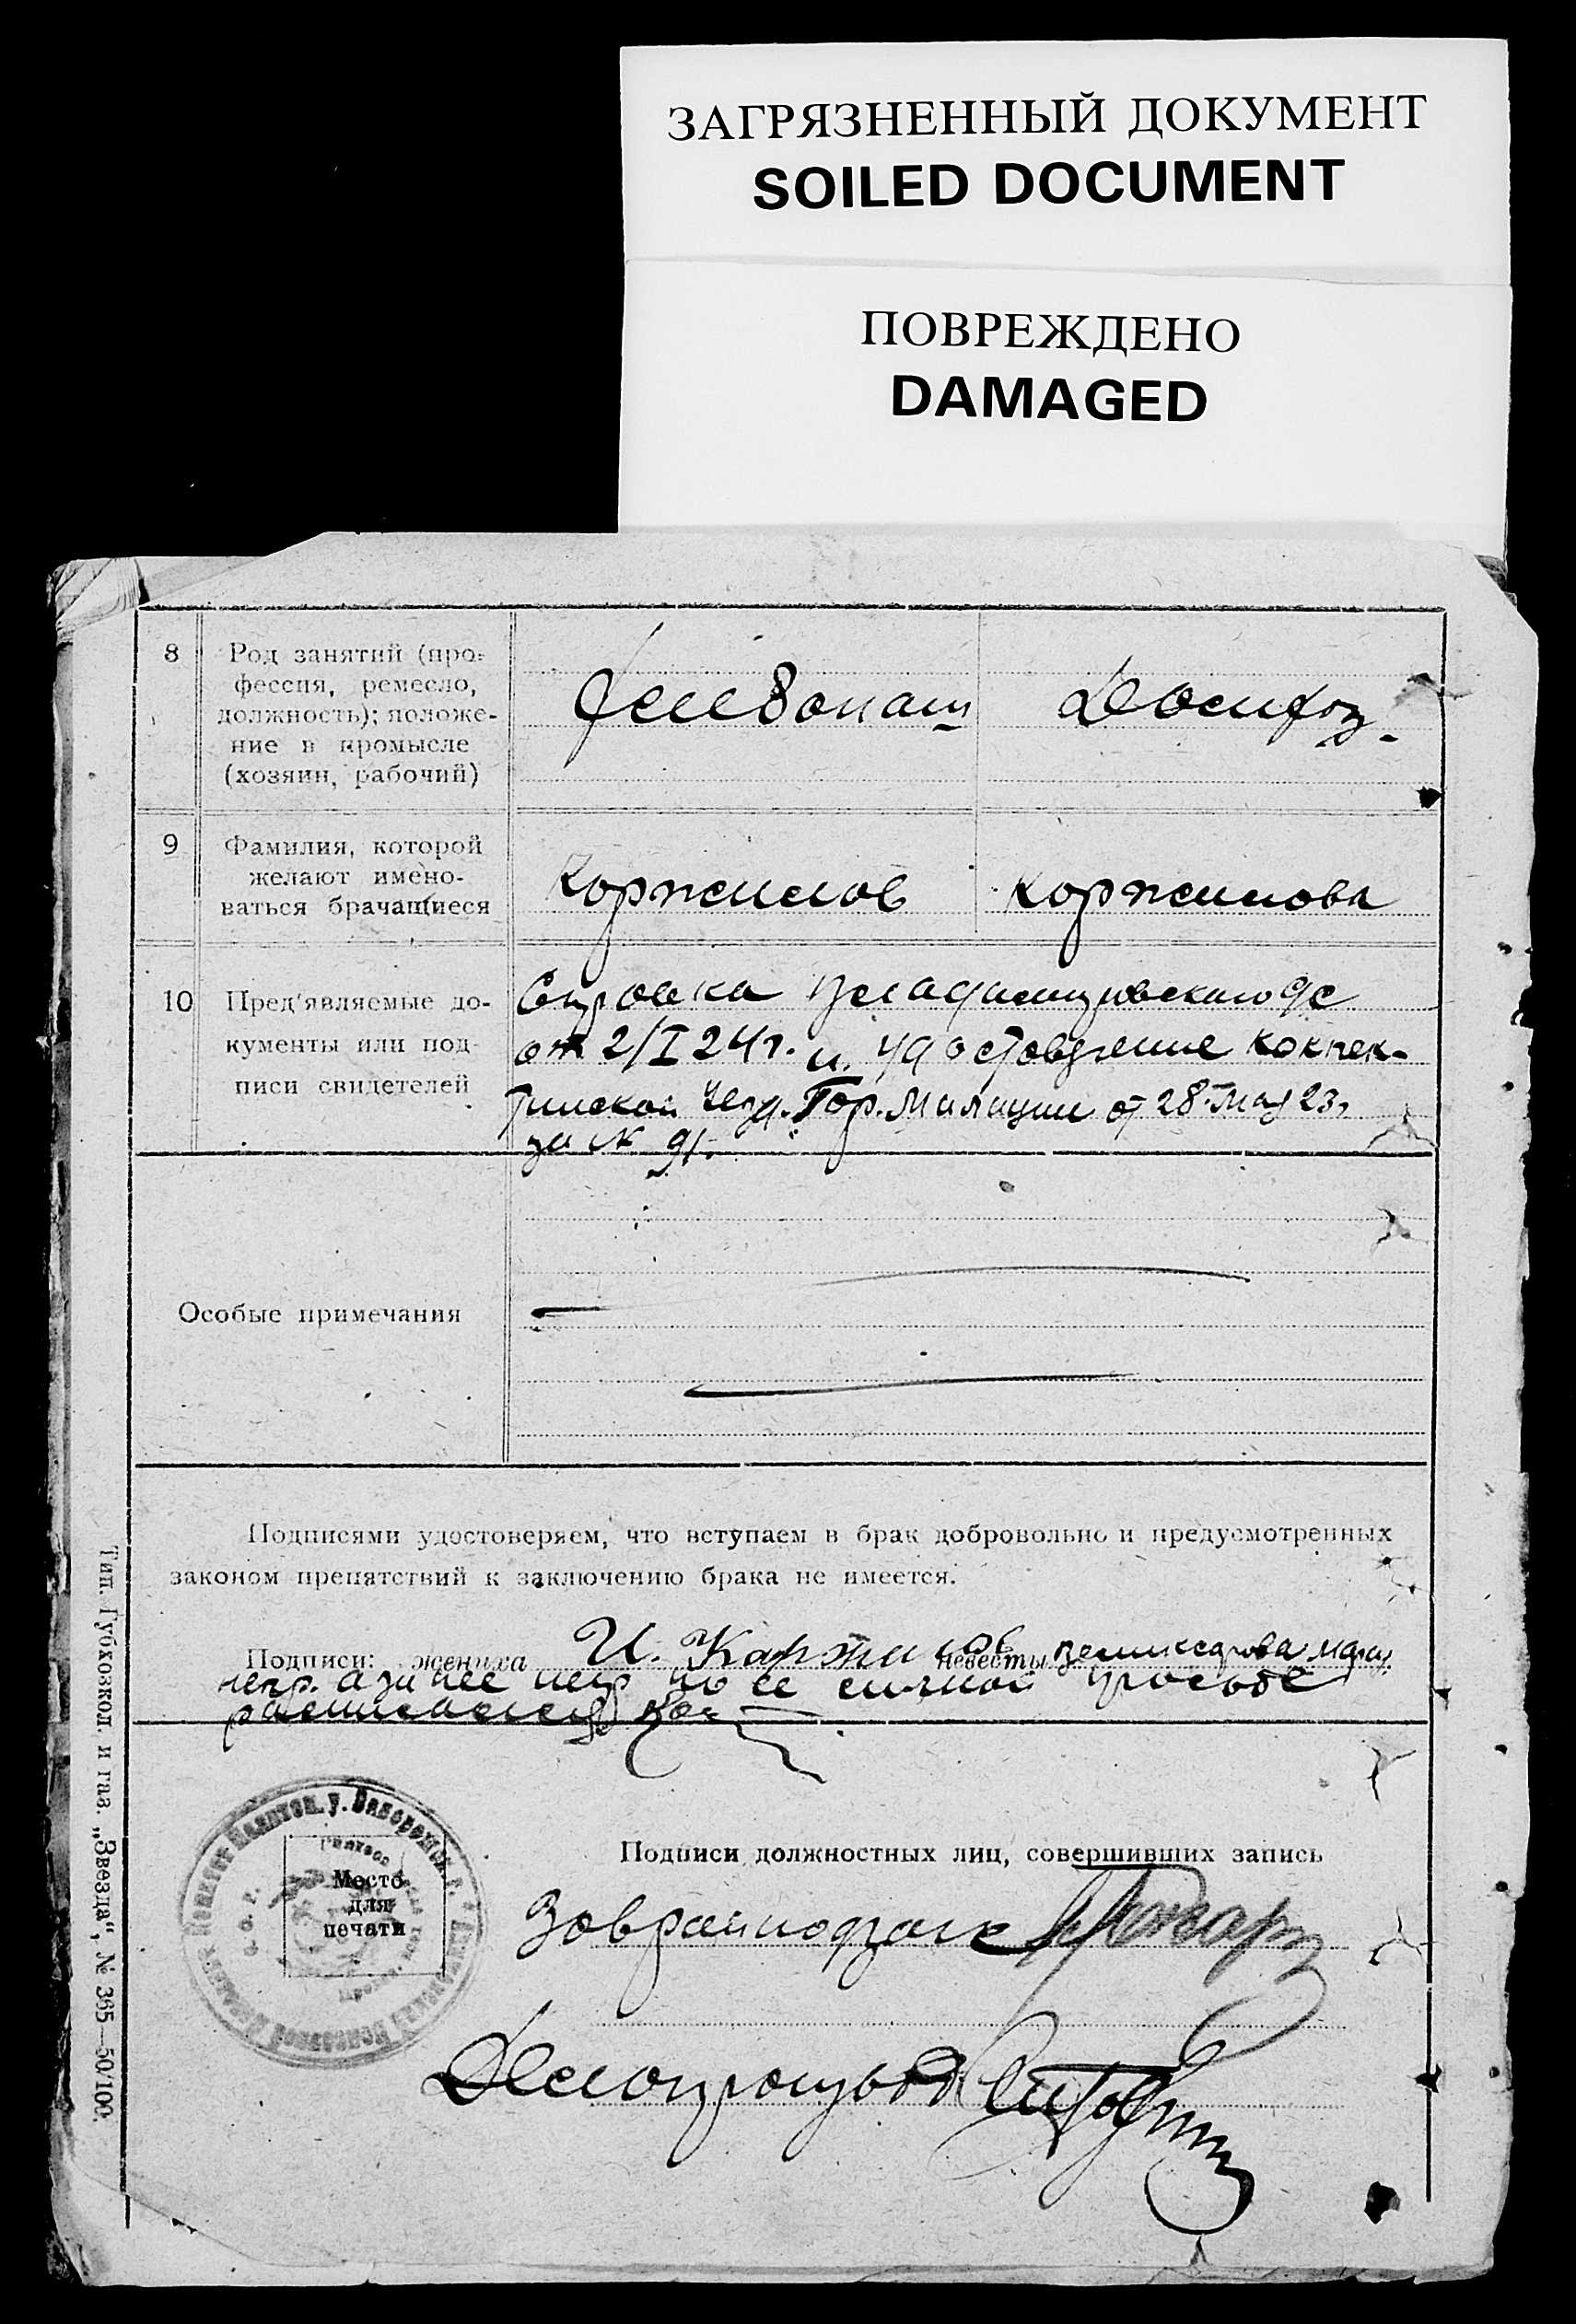 ЗАГРЯЗНЕННЫЙ ДОКУМЕНТ
SOILED DOCUMENT
ПОВРЕЖДЕНО
DAMAGED
8
Род занятий (про-
фессия, ремесло,
должность); положе-
ние в промысле
(хозяин, рабочий)
Домхоз.
9
Фамилия, которой
желают имено-
ваться брачащиеся
Коржинов
Коржинова
10
Пред'являемые до-
кументы или под-
писи свидетелей
Справка
от 2/I 24 г. и
Гор. Милиции от 28 Мая 23,
за № 91.
Особые примечания
Подписями удостоверяем, что вступаем в брак добровольно и предусмотренных
законом препятствий к заключению брака не имеется.
Подписи: жениха И. Каржинов невесты
негр. а за нее негр по ее личной просьбе
Место
для
печати
Подписи должностных лиц, совершивших запись
Делопроизвод
Тип. Губковкол. и газ. „Звезда“, № 365—50/100.